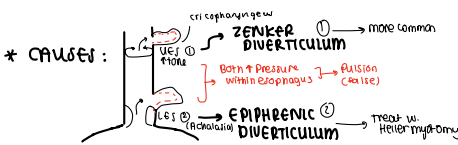 cricopharyngeus
* CAUSES:
UES ①
↑ tone
ZENKER ①
DIVERTICULUM
more common
Both ↑ Pressure
within esophagus
Pulsion
(false)
LES ②
(Achalasia)
EPIPHRENIC ②
DIVERTICULUM
treat w.
Heller myotomy